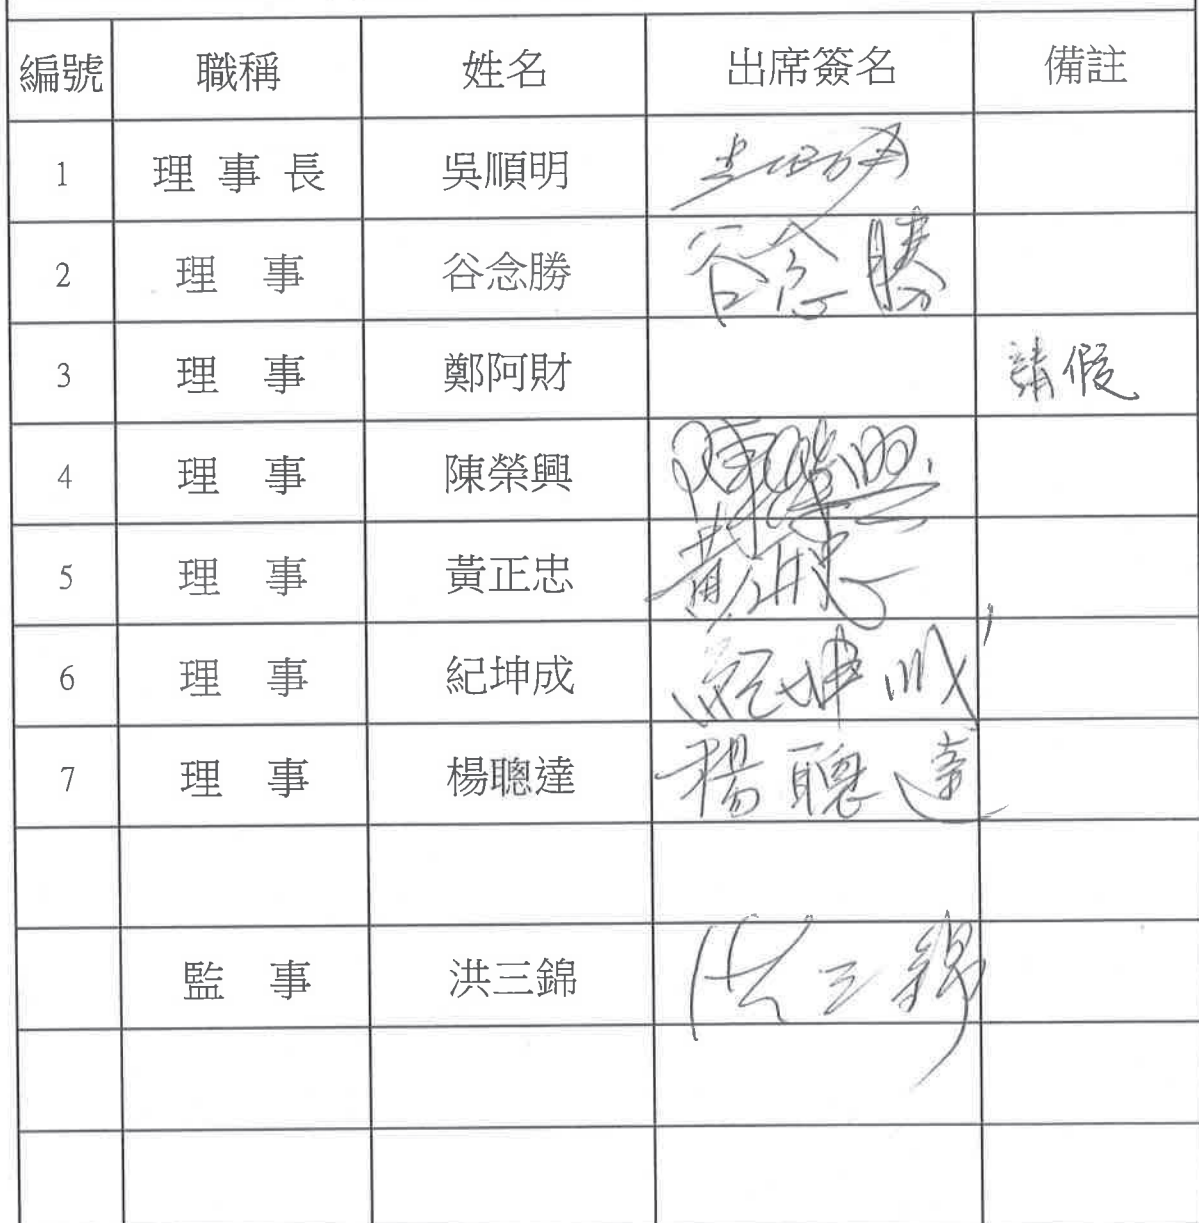 編號 職稱 姓名 出席簽名 備註
1 理事長 吳順明
2 理事 谷念勝 谷念勝
3 理事 鄭阿財 請假
4 理事 陳榮興 陳榮興
5 理事 黃正忠 黃正忠
6 理事 紀坤成 紀坤成
7 理事 楊聰達 楊聰達
監事 洪三錦 洪三錦